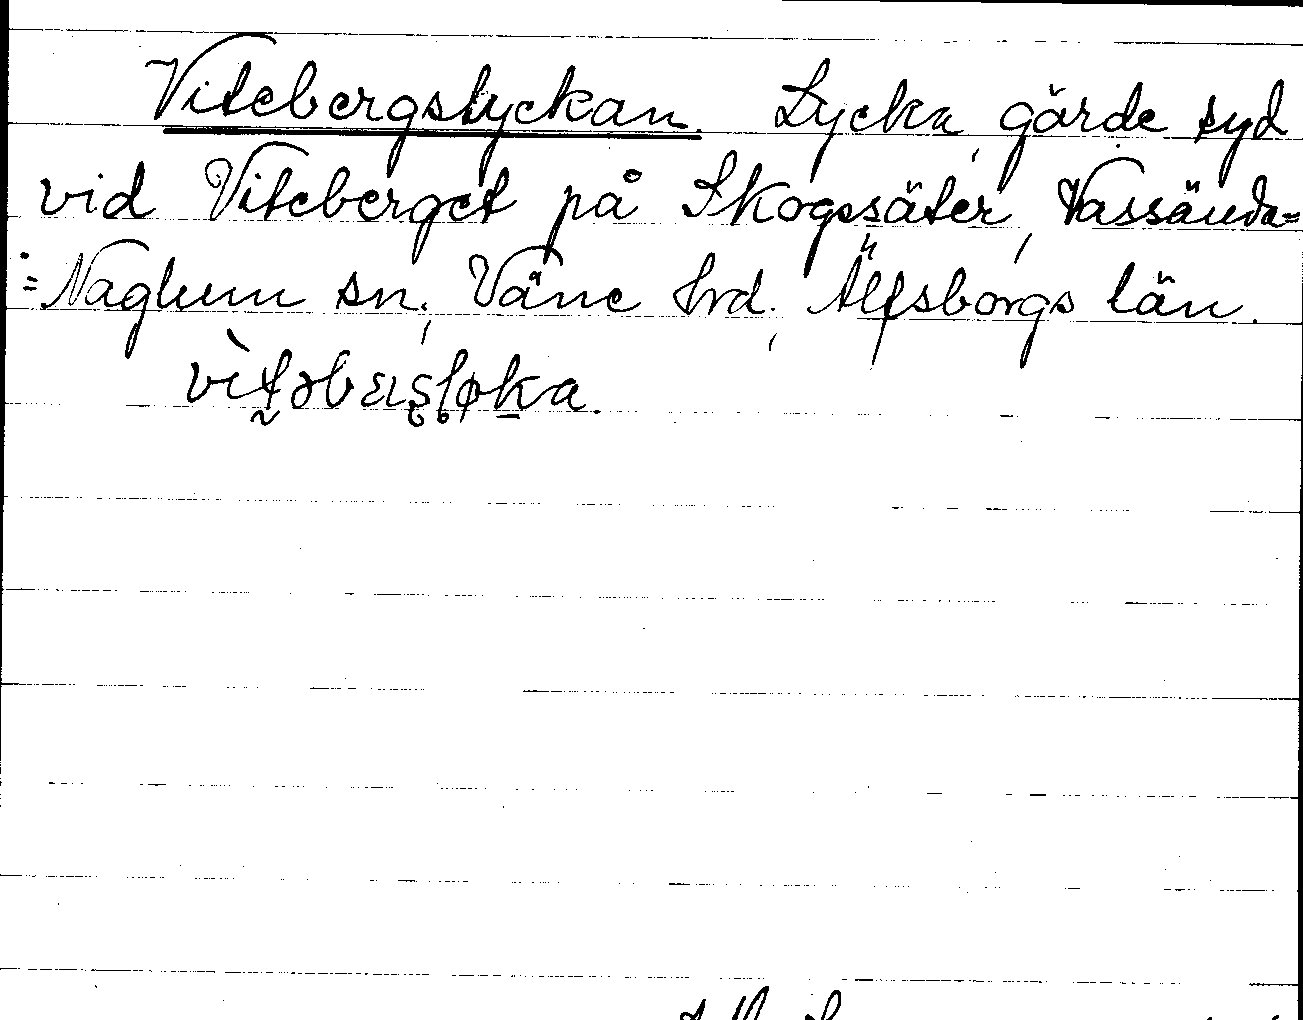 Vitebergslyckan. Lycka, gärde syd
vid Viteberget på Skogssäter, Vassända=
=Naglum sn; Väne hrd; Älfsborgs län.